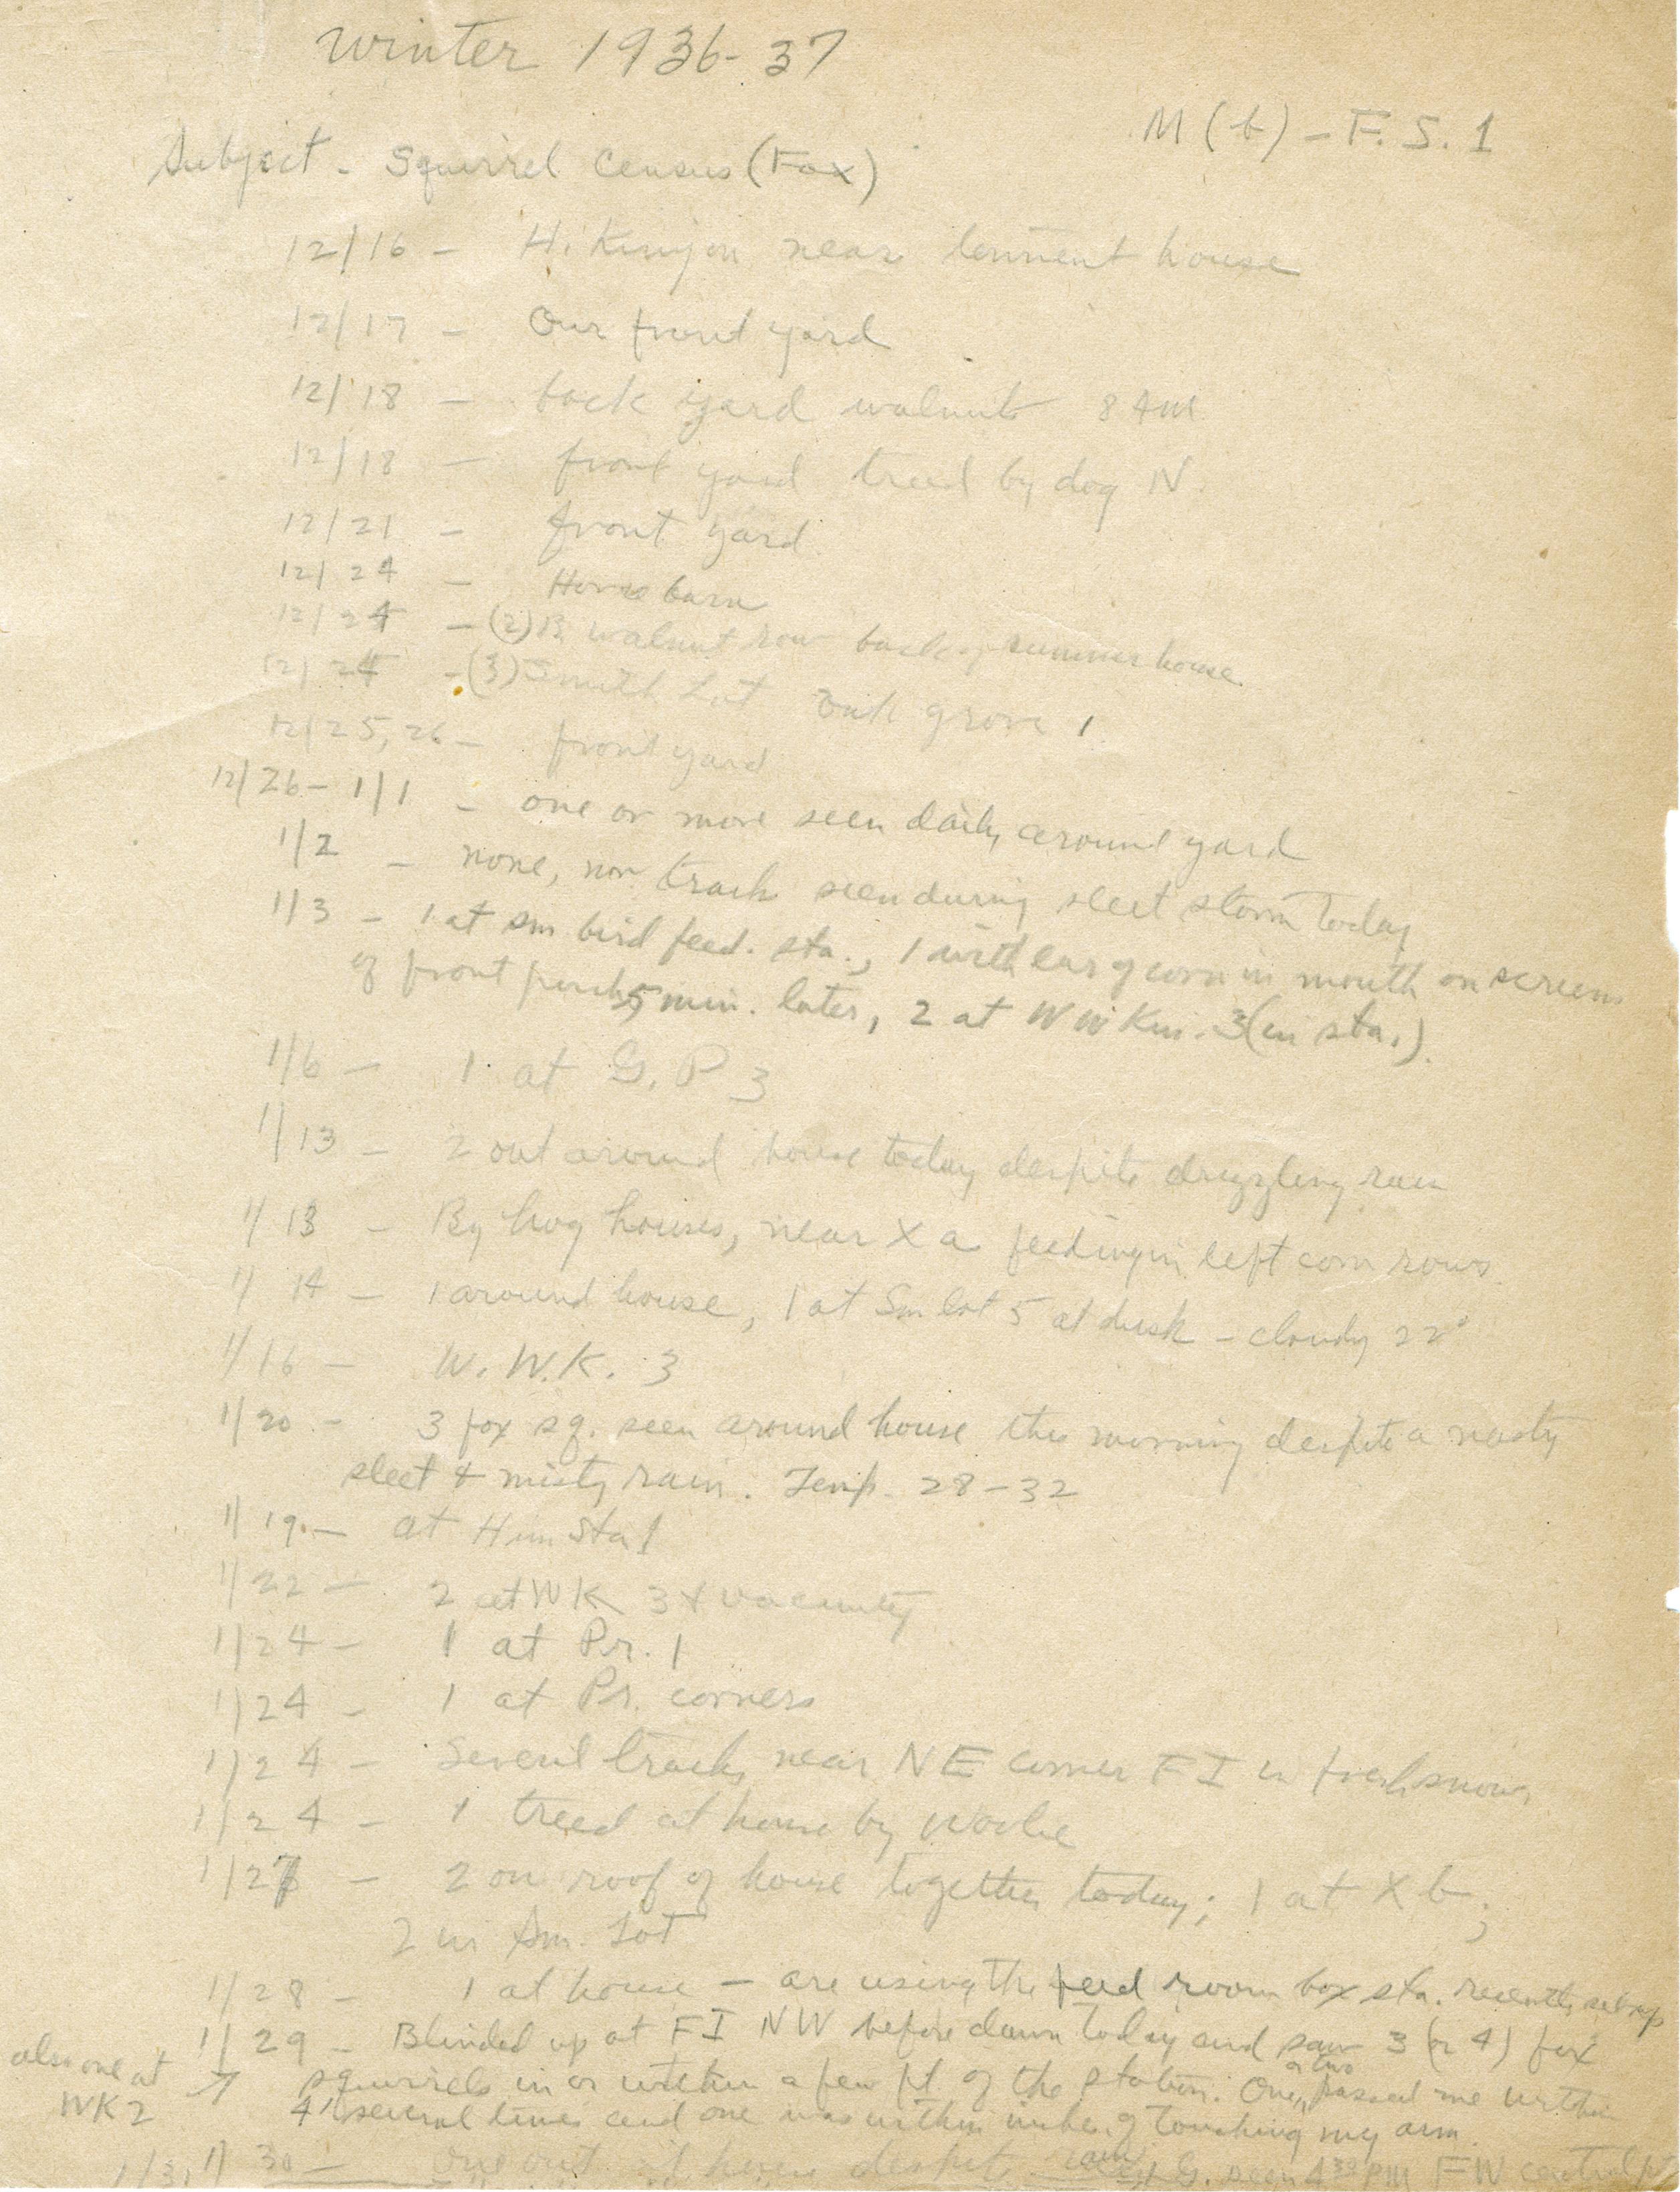 Winter 1936-37
M(b) - F.S.1
Subject - Squirrel Census (Fox)
12/16 - H. Kinyon near tennent house
12/17 - Our front yard
12/18 - back yard walnuts 8 AM
12/18 - front yard treed by dog N.
12/21 - front yard
12/24 - Horse barn
12/24 - (2) walnut row back of summer house
12/24 - (3) Smith Lot Oak grove 1
12/25, 26 - front yard
12/26 - 1/1 - one or more seen daily around yard
1/2 - none, nor track seen during sleet storm today
1/3 - 1 at sm bird feed. sta., 1 with ear of corn in mouth on screens
of front porch 5 min. later, 2 at W W Kin. 3 (in sta.).
1/6 - 1 at G. P 3
1/13 - 2 out around house today despite drizzling rain
1/13 - By hog houses, near X a feeding in left corn rows.
1/14 - 1 around house, 1 at Sm lot 5 at dusk - cloudy 22°
1/16 - W. W.K. 3
1/20 - 3 fox sq. seen around house this morning despite a nasty
sleet & misty rain. Temp. 28-32
1/19 - at Hum Sta 1
1/22 - 2 at WK 3 & vacinity
1/24 - 1 at Pr. 1
1/24 - 1 at Pr. corners
1/24 - Several tracks near NE corner FI in fresh snow.
1/24 - 1 treed at house by
1/27 - 2 on roof of house together today; 1 at X b;
2 in Sm. Lot
1/28 - 1 at house - are using the feed room box sta. recently set up
1/29 - Blinded up at FI NW before dawn today and saw 3 (or 4) fox
also one at WK 2 →
squirrels in or within a few ft. of the station. One, or two passed me within
4' several times and one was within inches of touching my arm.
1/30 - One out at house despite seen 4:30 PM FW
1/31